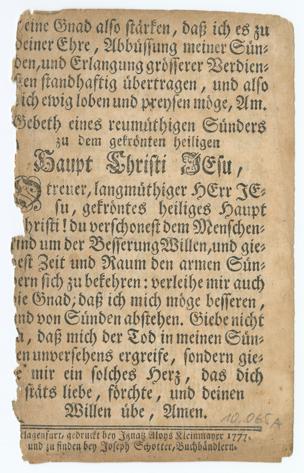 seine Gnad also stärken, daß ich es zu
deiner Ehre, Abbüssung meiner Sün-
den, und Erlangung grösserer Verdien-
sten standhaftig übertragen, und also
dich ewig loben und preysen möge, Am.
Gebeth eines reumüthigen Sünders
zu dem gekrönten heiligen
Haupt Christi JEsu,
O treuer, langmüthiger HErr JE-
su, gekröntes heiliges Haupt
Christi! du verschonest dem Menschen-
kind um der Besserung Willen, und gie-
best Zeit und Raum den armen Sün-
dern sich zu bekehren: verleihe mir auch
die Gnad, daß ich mich möge besseren,
und von Sünden abstehen. Giebe nicht
zu, daß mich der Tod in meinen Sün-
den unversehens ergreife, sondern gie-
be mir ein solches Herz, das dich
stäts liebe, förchte, und deinen
Willen übe, Amen.
10.065A
Klagenfurt, gedruckt bey Ignatz Aloys Kleinmayer 1777.
und zu finden bey Joseph Schotter, Buchbändlern.